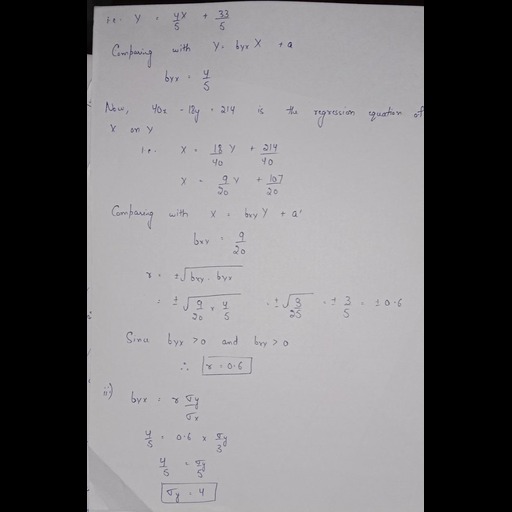 i.e. Y = 4/5 X + 33/5
Comparing with Y = byx X + a
byx = 4/5
Now, 40x - 18y = 214 is the regression equation of
X on Y
i.e. X = 18/40 Y + 214/40
X = 9/20 Y + 107/20
Comparing with X = bxy Y + a'
bxy = 9/20
r = ±√(bxy . byx)
= ±√(9/20 × 4/5) = ±√(3/25) = ± 3/5 = ± 0.6
Since byx > 0 and bxy > 0
∴ r = 0.6
ii) byx = r σy/σx
4/5 = 0.6 × σy/3
4/5 = σy/5
σy = 4